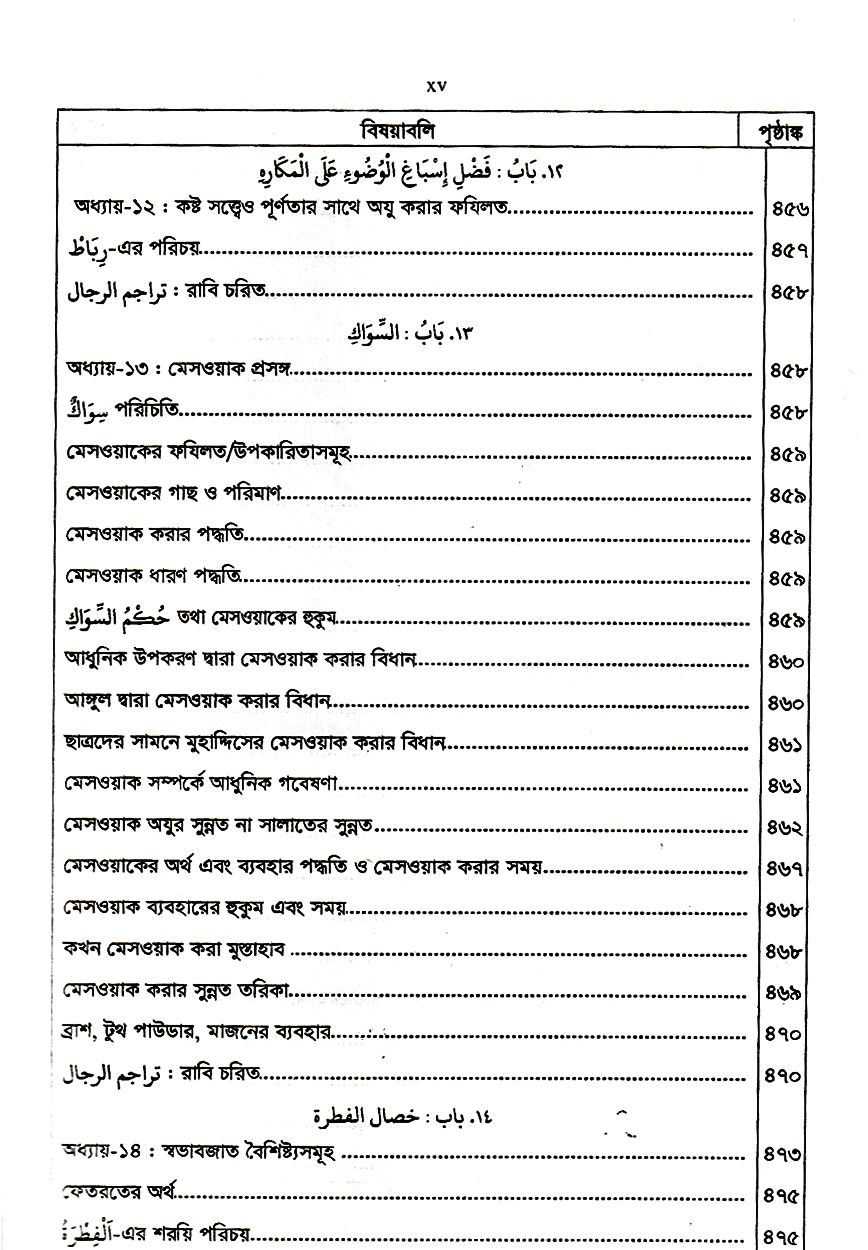 xv
বিষয়াবলি পৃষ্ঠাঙ্ক
١٢. بَابُ : فَضْلِ إِسْبَاغِ الْوُضُوءِ عَلَى الْمَكَارِهِ
অধ্যায়-১২ : কষ্ট সত্ত্বেও পূর্ণতার সাথে অযু করার ফযিলত.......... ৪৫৬
رِبَاطْ-এর পরিচয়.......... ৪৫৭
تراجم الرجال : রাবি চরিত.......... ৪৫৮
١٣. بَابُ : السِّوَاكِ
অধ্যায়-১৩ : মেসওয়াক প্রসঙ্গ.......... ৪৫৮
سِوَاكٌ পরিচিতি.......... ৪৫৮
মেসওয়াকের ফযিলত/উপকারিতাসমূহ.......... ৪৫৯
মেসওয়াকের গাছ ও পরিমাণ.......... ৪৫৯
মেসওয়াক করার পদ্ধতি.......... ৪৫৯
মেসওয়াক ধারণ পদ্ধতি.......... ৪৫৯
حُكْمُ السِّوَاكِ তথা মেসওয়াকের হুকুম.......... ৪৫৯
আধুনিক উপকরণ দ্বারা মেসওয়াক করার বিধান.......... ৪৬০
আঙ্গুল দ্বারা মেসওয়াক করার বিধান.......... ৪৬০
ছাত্রদের সামনে মুহাদ্দিসের মেসওয়াক করার বিধান.......... ৪৬১
মেসওয়াক সম্পর্কে আধুনিক গবেষণা.......... ৪৬১
মেসওয়াক অযুর সুন্নত না সালাতের সুন্নত.......... ৪৬২
মেসওয়াকের অর্থ এবং ব্যবহার পদ্ধতি ও মেসওয়াক করার সময়.......... ৪৬৭
মেসওয়াক ব্যবহারের হুকুম এবং সময়.......... ৪৬৮
কখন মেসওয়াক করা মুস্তাহাব .......... ৪৬৮
মেসওয়াক করার সুন্নত তরিকা.......... ৪৬৯
ব্রাশ, টুথ পাউডার, মাজনের ব্যবহার.......... ৪৭০
تراجم الرجال : রাবি চরিত.......... ৪৭০
١٤. باب : خصال الفطرة
অধ্যায়-১৪ : স্বভাবজাত বৈশিষ্ট্যসমূহ .......... ৪৭৩
ফেতরতের অর্থ.......... ৪৭৫
اَلْفِطْرَةُ-এর শরয়ি পরিচয়.......... ৪৭৫